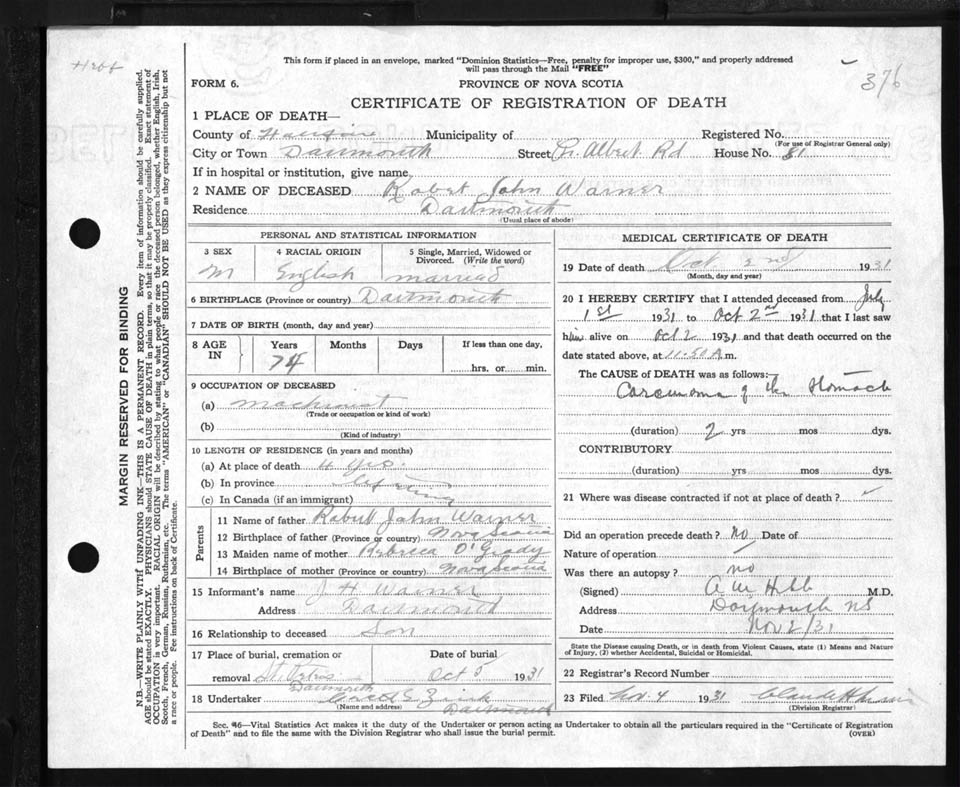 This form if placed in an envelope, marked "Dominion Statistics—Free, penalty for improper use, $300," and properly addressed
will pass through the Mail "FREE"
376
FORM 6.
PROVINCE OF NOVA SCOTIA
CERTIFICATE OF REGISTRATION OF DEATH
1 PLACE OF DEATH—
County of Halifax Municipality of Registered No.
(For use of Registrar General only)
City or Town Dartmouth Street Pr. Albert Rd House No. 81
If in hospital or institution, give name
2 NAME OF DECEASED Robert John Warner
Residence Dartmouth
(Usual place of abode)
PERSONAL AND STATISTICAL INFORMATION
3 SEX 4 RACIAL ORIGIN 5 Single, Married, Widowed or Divorced. (Write the word)
M English married
6 BIRTHPLACE (Province or country) Dartmouth
7 DATE OF BIRTH (month, day and year)
8 AGE IN Years Months Days If less than one day,
74 hrs. or min.
9 OCCUPATION OF DECEASED
(a) machinist
(Trade or occupation or kind of work)
(b)
(Kind of industry)
10 LENGTH OF RESIDENCE (in years and months)
(a) At place of death 4 yrs.
(b) In province lifetime
(c) In Canada (if an immigrant)
Parents
11 Name of father Robert John Warner
12 Birthplace of father (Province or country) Nova Scotia
13 Maiden name of mother Rebecca O'Grady
14 Birthplace of mother (Province or country) Nova Scotia
15 Informant's name J H Warner
Address Dartmouth
16 Relationship to deceased Son
17 Place of burial, cremation or Date of burial
removal St Peters Oct 5 1931
Dartmouth
18 Undertaker Zink
(Name and address) Dartmouth
MEDICAL CERTIFICATE OF DEATH
19 Date of death Oct 2nd 1931
(Month, day and year)
20 I HEREBY CERTIFY that I attended deceased from July
1st 1931 to Oct 2nd 1931 that I last saw
him alive on Oct 2 1931 and that death occurred on the
date stated above, at 11.50 A.m.
The CAUSE OF DEATH was as follows:
Carcinoma of the Stomach
(duration) 2 yrs mos dys.
CONTRIBUTORY
(duration) yrs mos dys.
21 Where was disease contracted if not at place of death?
Did an operation precede death? No Date of
Nature of operation
Was there an autopsy? no
(Signed) M.D.
Address Dartmouth NS
Date Nov 2/31
State the Disease causing Death, or in death from Violent Causes, state (1) Means and Nature
of Injury, (2) whether Accidental, Suicidal or Homicidal.
22 Registrar's Record Number
23 Filed Nov. 4 1931
(Division Registrar)
Sec. 46—Vital Statistics Act makes it the duty of the Undertaker or person acting as Undertaker to obtain all the particulars required in the "Certificate of Registration
of Death" and to file the same with the Division Registrar who shall issue the burial permit.
(OVER)
MARGIN RESERVED FOR BINDING
N.B.—WRITE PLAINLY WITH UNFADING INK—THIS IS A PERMANENT RECORD. Every item of information should be carefully supplied.
AGE should be stated EXACTLY. PHYSICIANS should STATE CAUSE OF DEATH in plain terms, so that it may be properly classified. Exact statement of
OCCUPATION is very important. RACIAL ORIGIN will be described by stating to what people or race the deceased person belonged, whether English, Irish,
Scotch, French, German, Russian, Ruthenian, etc. The terms "AMERICAN" or "CANADIAN" SHOULD NOT BE USED as they express citizenship but not
a race or people. See instructions on back of Certificate.